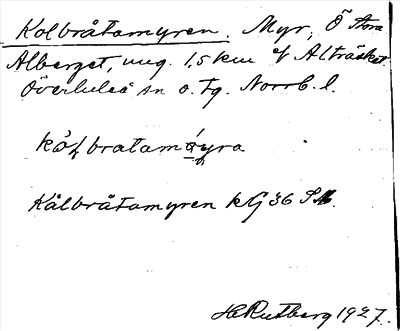 Kolbråtamyren. Myr, Ö Stora
Alberget, ung. 1,5 km Ö Alträsket.
Överluleå sn o. tg. Norrb. l.
bratam
Kålbråtamyren kG 36 S
H Rutberg 1927.